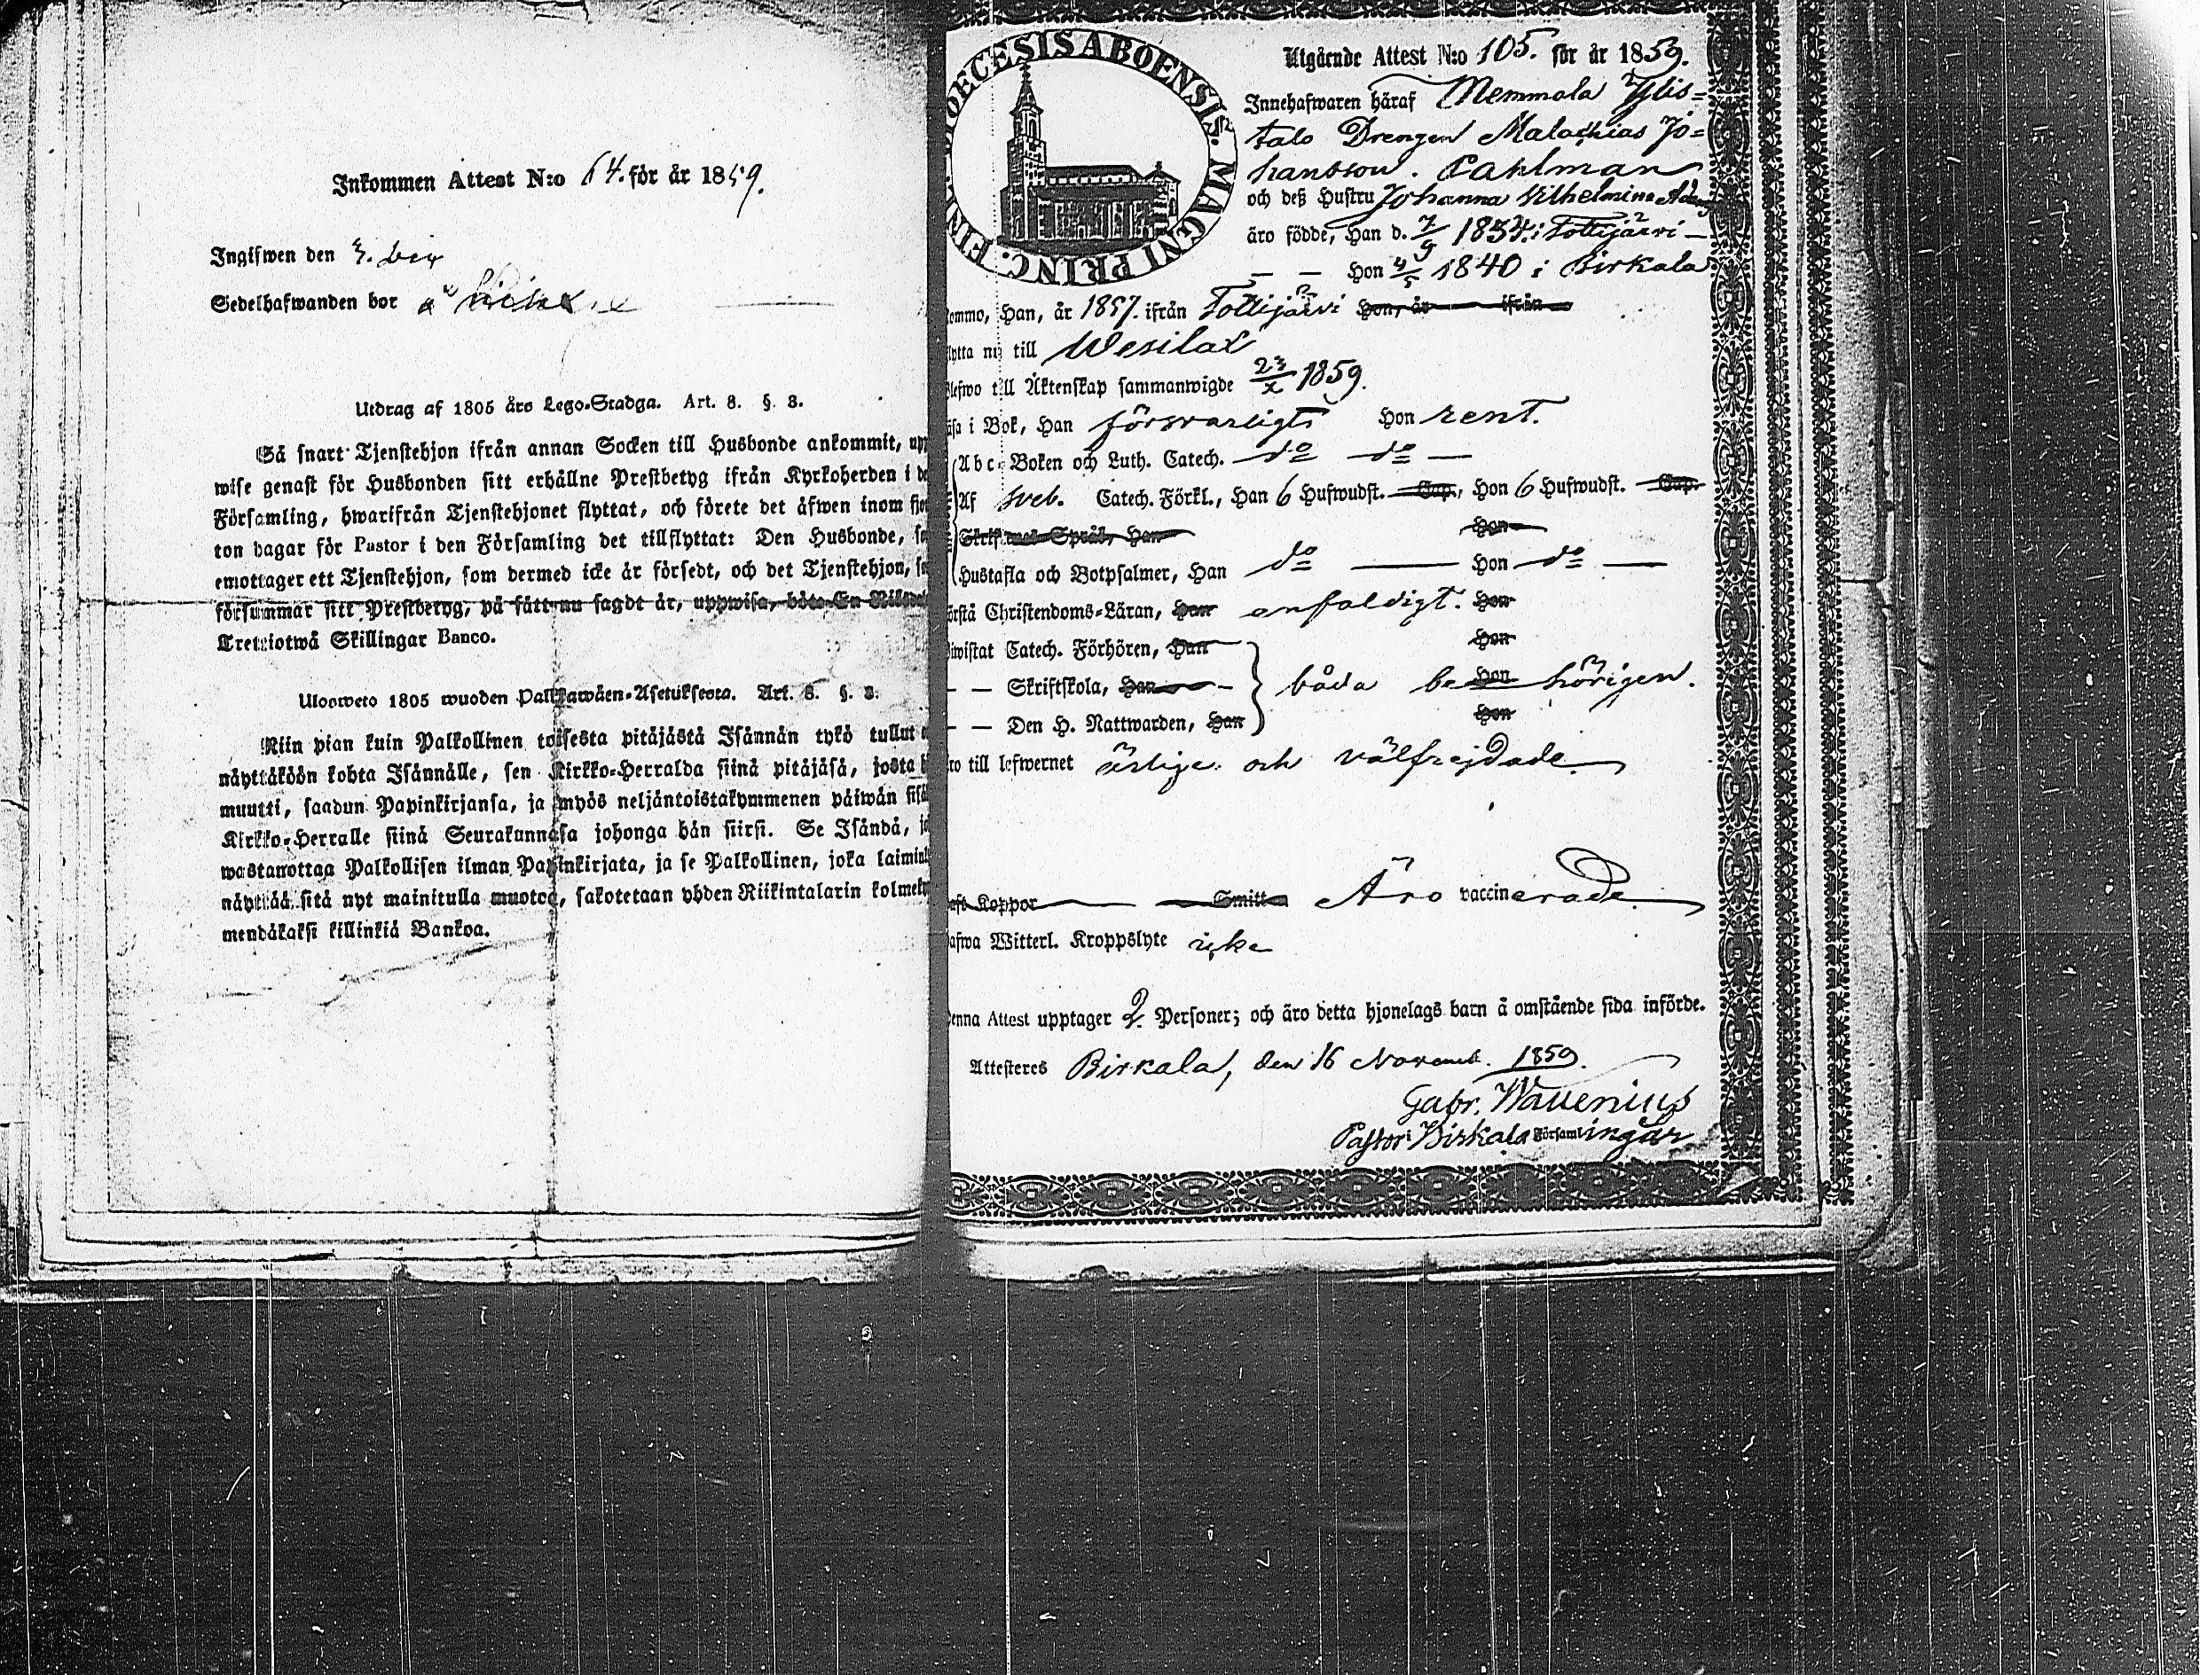 Inkommen Attest N:o 64. för år 1859.
Ingifwen den 3.
Sedelhafwanden bor å
Utdrag af 1805 års Lego-Stadga. Art. 8. §. 3.
Så snart Tjenstehjon ifrån annan Socken till Husbonde ankommit, upp
wise genast för Husbonden sitt erhållne Prestbetyg ifrån Kyrkoherden i de
Församling, hwarifrån Tjenstehjonet flyttat, och förete det äfwen inom fjor
ton dagar för Pastor i den Församling det tillflyttat: Den Husbonde, so
emottager ett Tjenstehjon, som dermed icke är försedt, och det Tjenstehjon, so
försummar sitt Prestbetyg, på sätt nu sagdt är, uppwisa, böte En Riksdal
Trettiotwå Skillingar Banco.
Ulosweto 1805 wuoden Palkkawäen-Asetuksesta. Art. 8. §. 3.
Niin pian kuin Palkollinen toisesta pitäjästä Isännän tykö tullut o
näyttäköön kohta Isännälle, sen Kirkko-Herralda siinä pitäjäsä, josta h
muutti, saadun Papinkirjansa, ja myös neljäntoistakymmenen päiwän sisä
Kirkko-Herralle siinä Seurakunnasa johonga hän siirsi. Se Isändä, jo
wastanottaa Palkollisen ilman Papinkirjata, ja se Palkollinen, joka laiminl
näyttää sitä nyt mainitulla muotoa, sakotetaan yhden Riikintalarin kolmeky
mendäkaksi killinkiä Bankoa.
DIOECESIS ABOENSIS. MAGNI PRINC. FINL.
Utgående Attest N:o 105. för år 1859.
Innehafwaren häraf Memmala Ylis=
talo Drengen Malachias Jo=
hansson. Pahlman
och deß Hustru Johanna Vilhelmina
äro födde, Han d. 7/9 1834. i Tottijärvi —
— — Hon 4/5 1840 i Birkala
ommo, Han, år 1857. ifrån Tottijärvi Hon, år ifrån
lytta nu till Wesilax
lefwo till Äktenskap sammanwigde 23/x 1859.
äsa i Bok, Han försvarligt Hon rent.
Abc-Boken och Luth. Catech. do do —
Af sveb. Catech. Förkl., Han 6 Hufwudst. Cap., Hon 6 Hufwudst. Cap.
Skriftenes Språk, Han Hon
Hustafla och Botpsalmer, Han do — Hon do —
örstå Christendoms-Läran, Han enfaldigt. Hon
iwistat Catech. Förhören, Han Hon
— — Skriftskola, Han — båda be Hon hörigen.
— — Den H. Nattwarden, Han Hon
ro till lefwernet ärlige och välfrejdade
aft Koppor Smitt Äro vaccinerade
afwa Witterl. Kroppslyte icke
enna Attest upptager 2. Personer; och äro detta hjonelags barn å omstående sida införde.
Attesteres Birkala, den 16 Novemb. 1859.
Gabr. Wavenius
Pastor i Birkala Församlingar